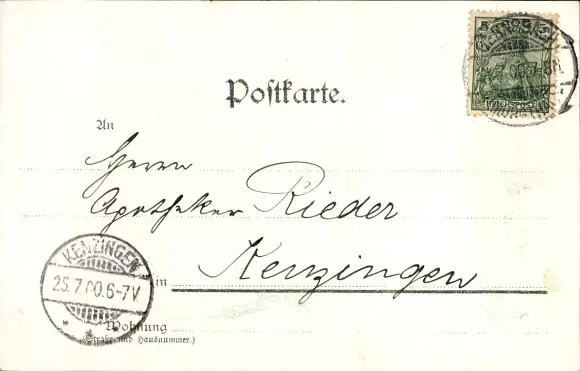 Postkarte.
An
Herrn
Apotheker Rieder
in Kenzingen
Wohnung
(Straße und Hausnummer.)
KENZINGEN
25.7.00.6-7V